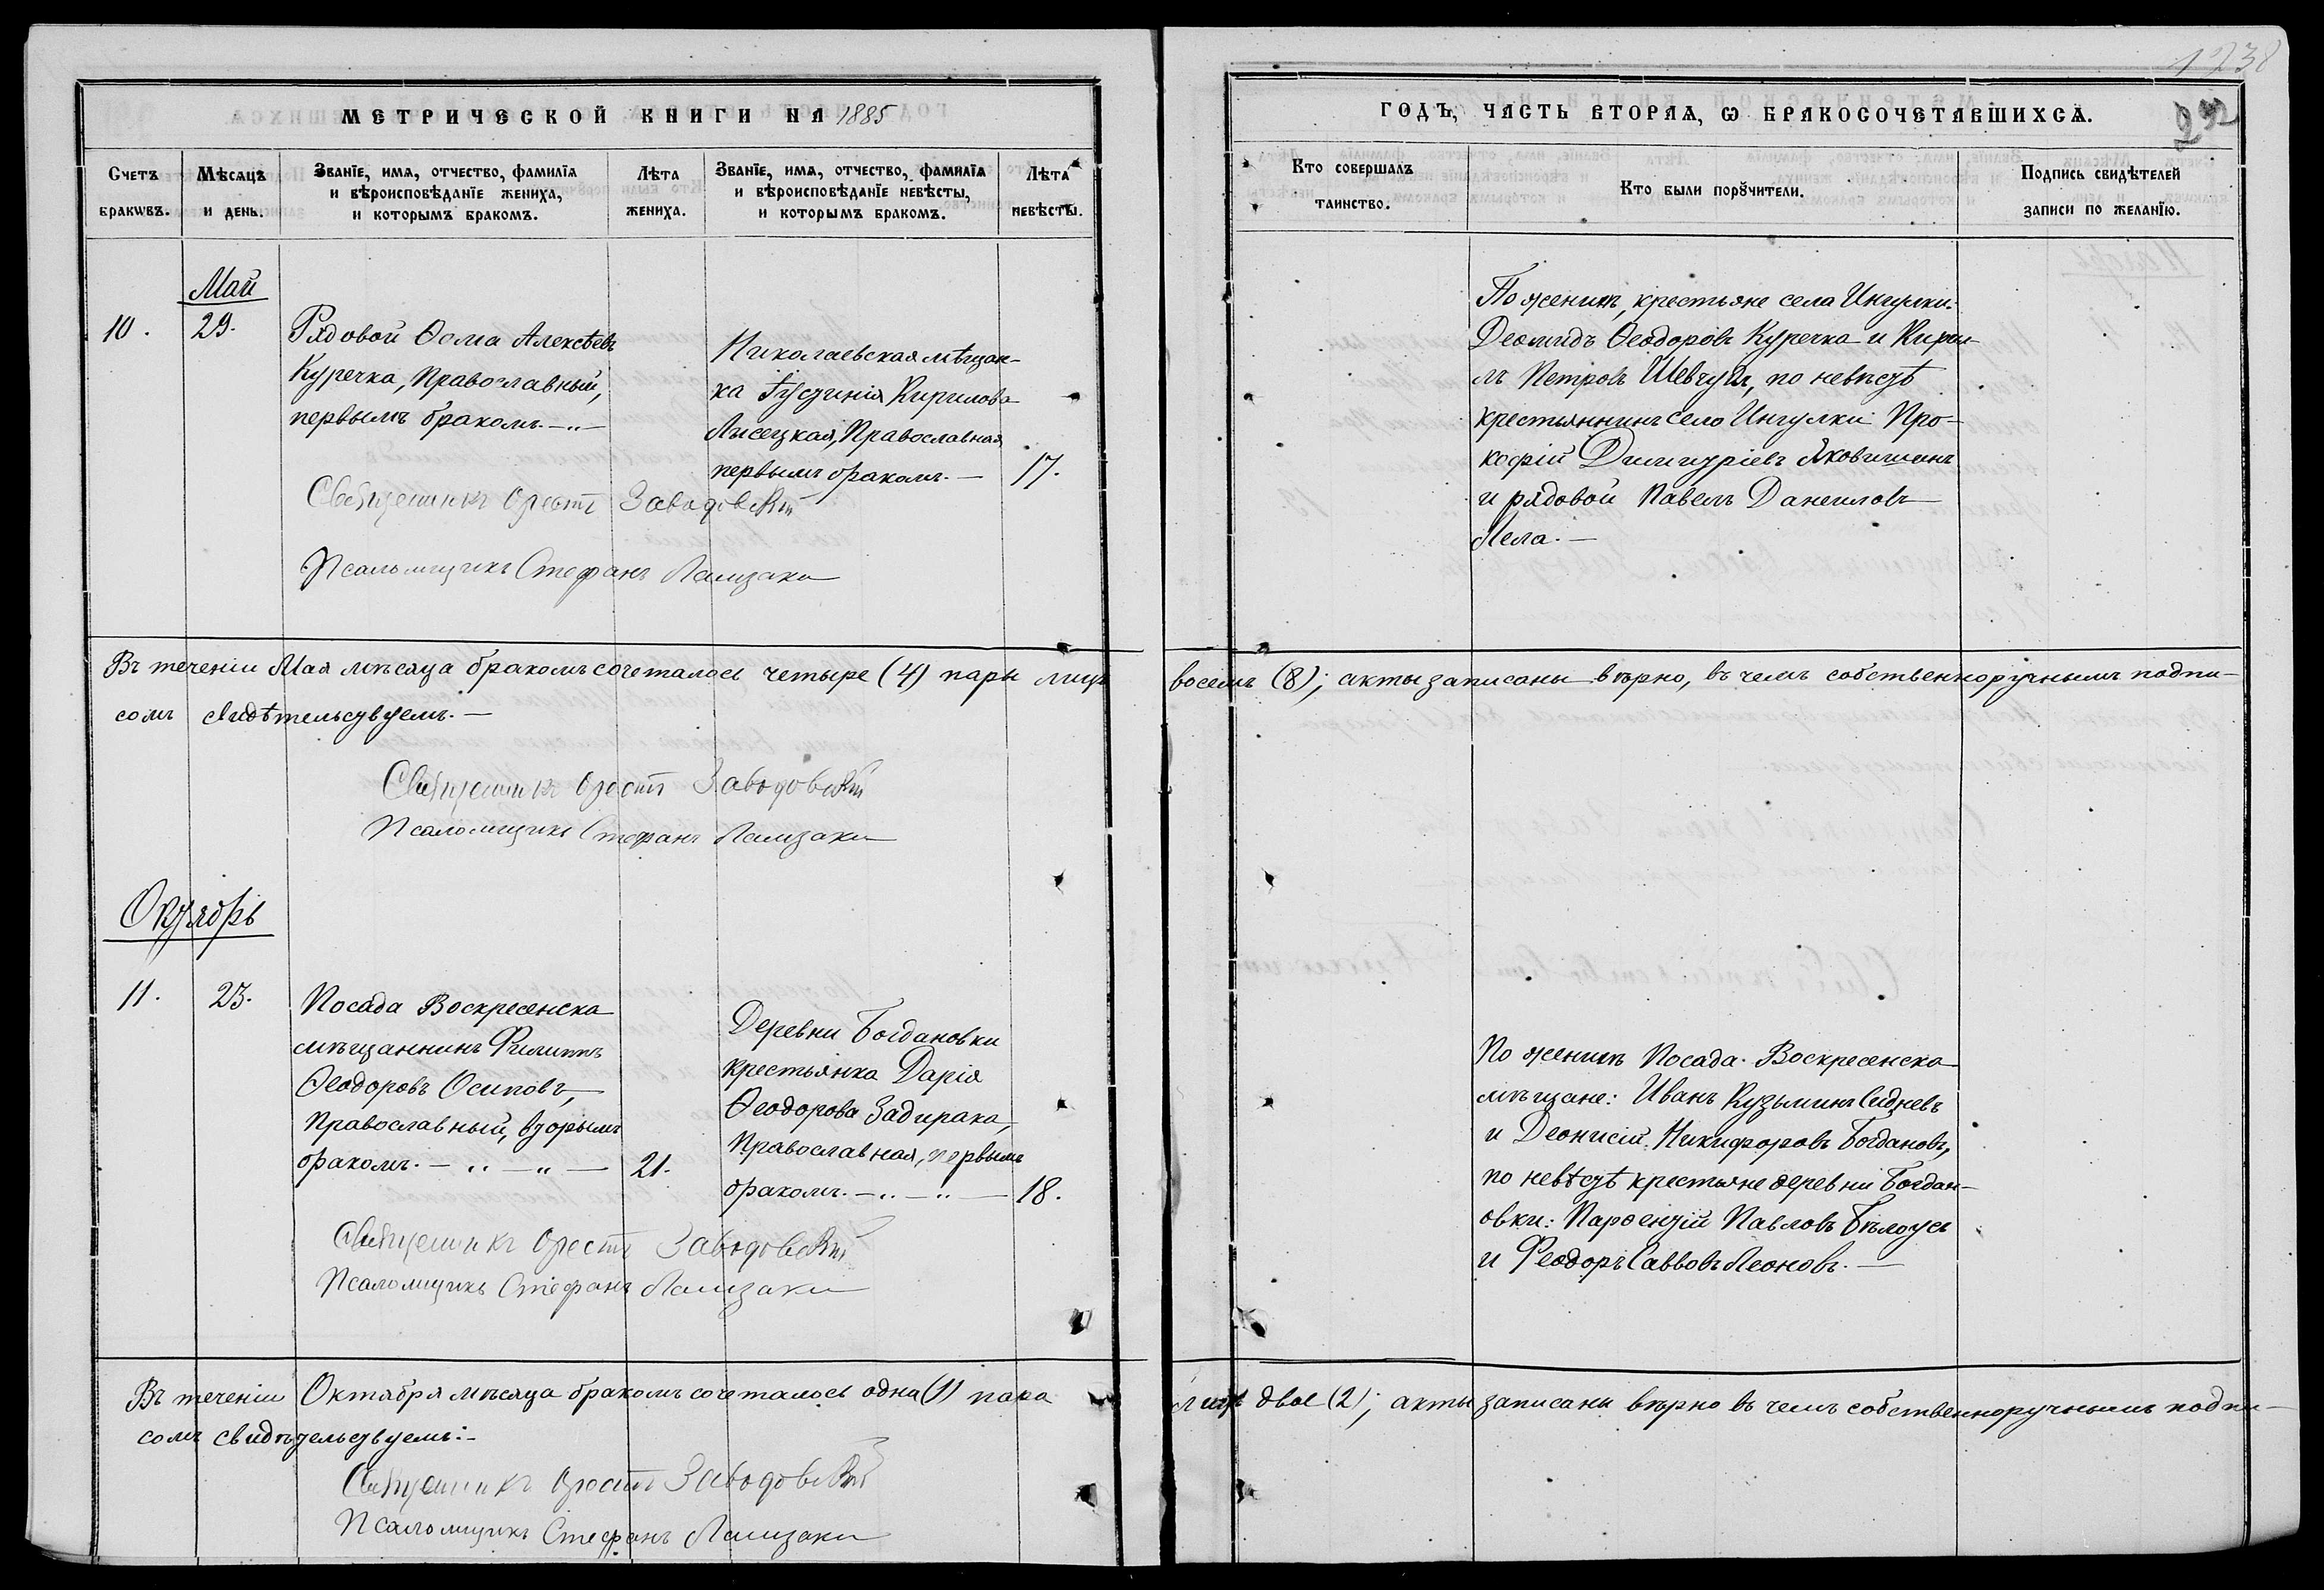 МЕТРИЧЕСКОЙ КНИГИ НА 1885
Счетъ браковъ.
Мѣсяцъ и день.
Званіе, имя, отчество, фамилія и вѣроисповѣданіе жениха, и которымъ бракомъ.
Лѣта жениха.
Званіе, имя, отчество, фамилія и вѣроисповѣданіе невѣсты, и которымъ бракомъ.
Лѣта невѣсты.
Май
10. 29.
Рядовой Ѳома Алексѣевъ
Куречка, Православный,
первымъ бракомъ.
Николаевская мѣщан-
ка Іустинія Кирилова
Лисецкая, Православная
первымъ бракомъ. — 17.
Священникъ Орестъ Заводовскій
Псаломщикъ Стефанъ
Въ теченіи Мая мѣсяца бракомъ сочеталось четыре (4) пары лицъ
сомъ свидѣтельствуемъ. —
Священникъ Орестъ Заводовскій
Псаломщикъ Стефанъ
Октябрь
11. 23.
Посада Воскресенска
мѣщанинъ Филиппъ
Ѳеодоровъ Осиповъ,
Православный, вторымъ
бракомъ. — 21.
Деревни Богдановки
крестьянка Дарія
Ѳеодорова Задирака,
Православная, первымъ
бракомъ. — 18.
Священникъ Орестъ Заводовскій
Псаломщикъ Стефанъ
Въ теченіи Октября мѣсяца бракомъ сочеталось одна (1) пара
сомъ свидѣтельствуемъ:-
Священникъ Орестъ Заводовскій
Псаломщикъ Стефанъ
1238
292
ГОДЪ, ЧАСТЬ ВТОРАЯ, Ѡ БРАКОСОЧЕТАВШИХСЯ.
Кто совершалъ таинство.
Кто были порꙋчители.
Подпись свидѣтелей записи по желанію.
По женихѣ, крестьяне села Ингулки:
Деомидъ Ѳеодоровъ Куречка и Кирил-
лъ Петровъ Шевчукъ, по невѣстѣ
крестьянинъ села Ингулки Про-
кофій Димитріевъ Яковишинъ
и рядовой Павелъ Даниловъ
Лела. —
восемь (8); акты записаны вѣрно, въ чемъ собственноручнымъ подпи-
По женихѣ Посада Воскресенска
мѣщане: Иванъ Кузьминъ Сидневъ
и Деонисій Никифоровъ Богдановъ,
по невѣстѣ крестьяне деревни Богдан-
овки: Парѳентій Павловъ Бѣлоусъ
и Ѳеодоръ Саввовъ Леоновъ. —
лицъ двое (2); акты записаны вѣрно въ чемъ собственноручнымъ подпи-